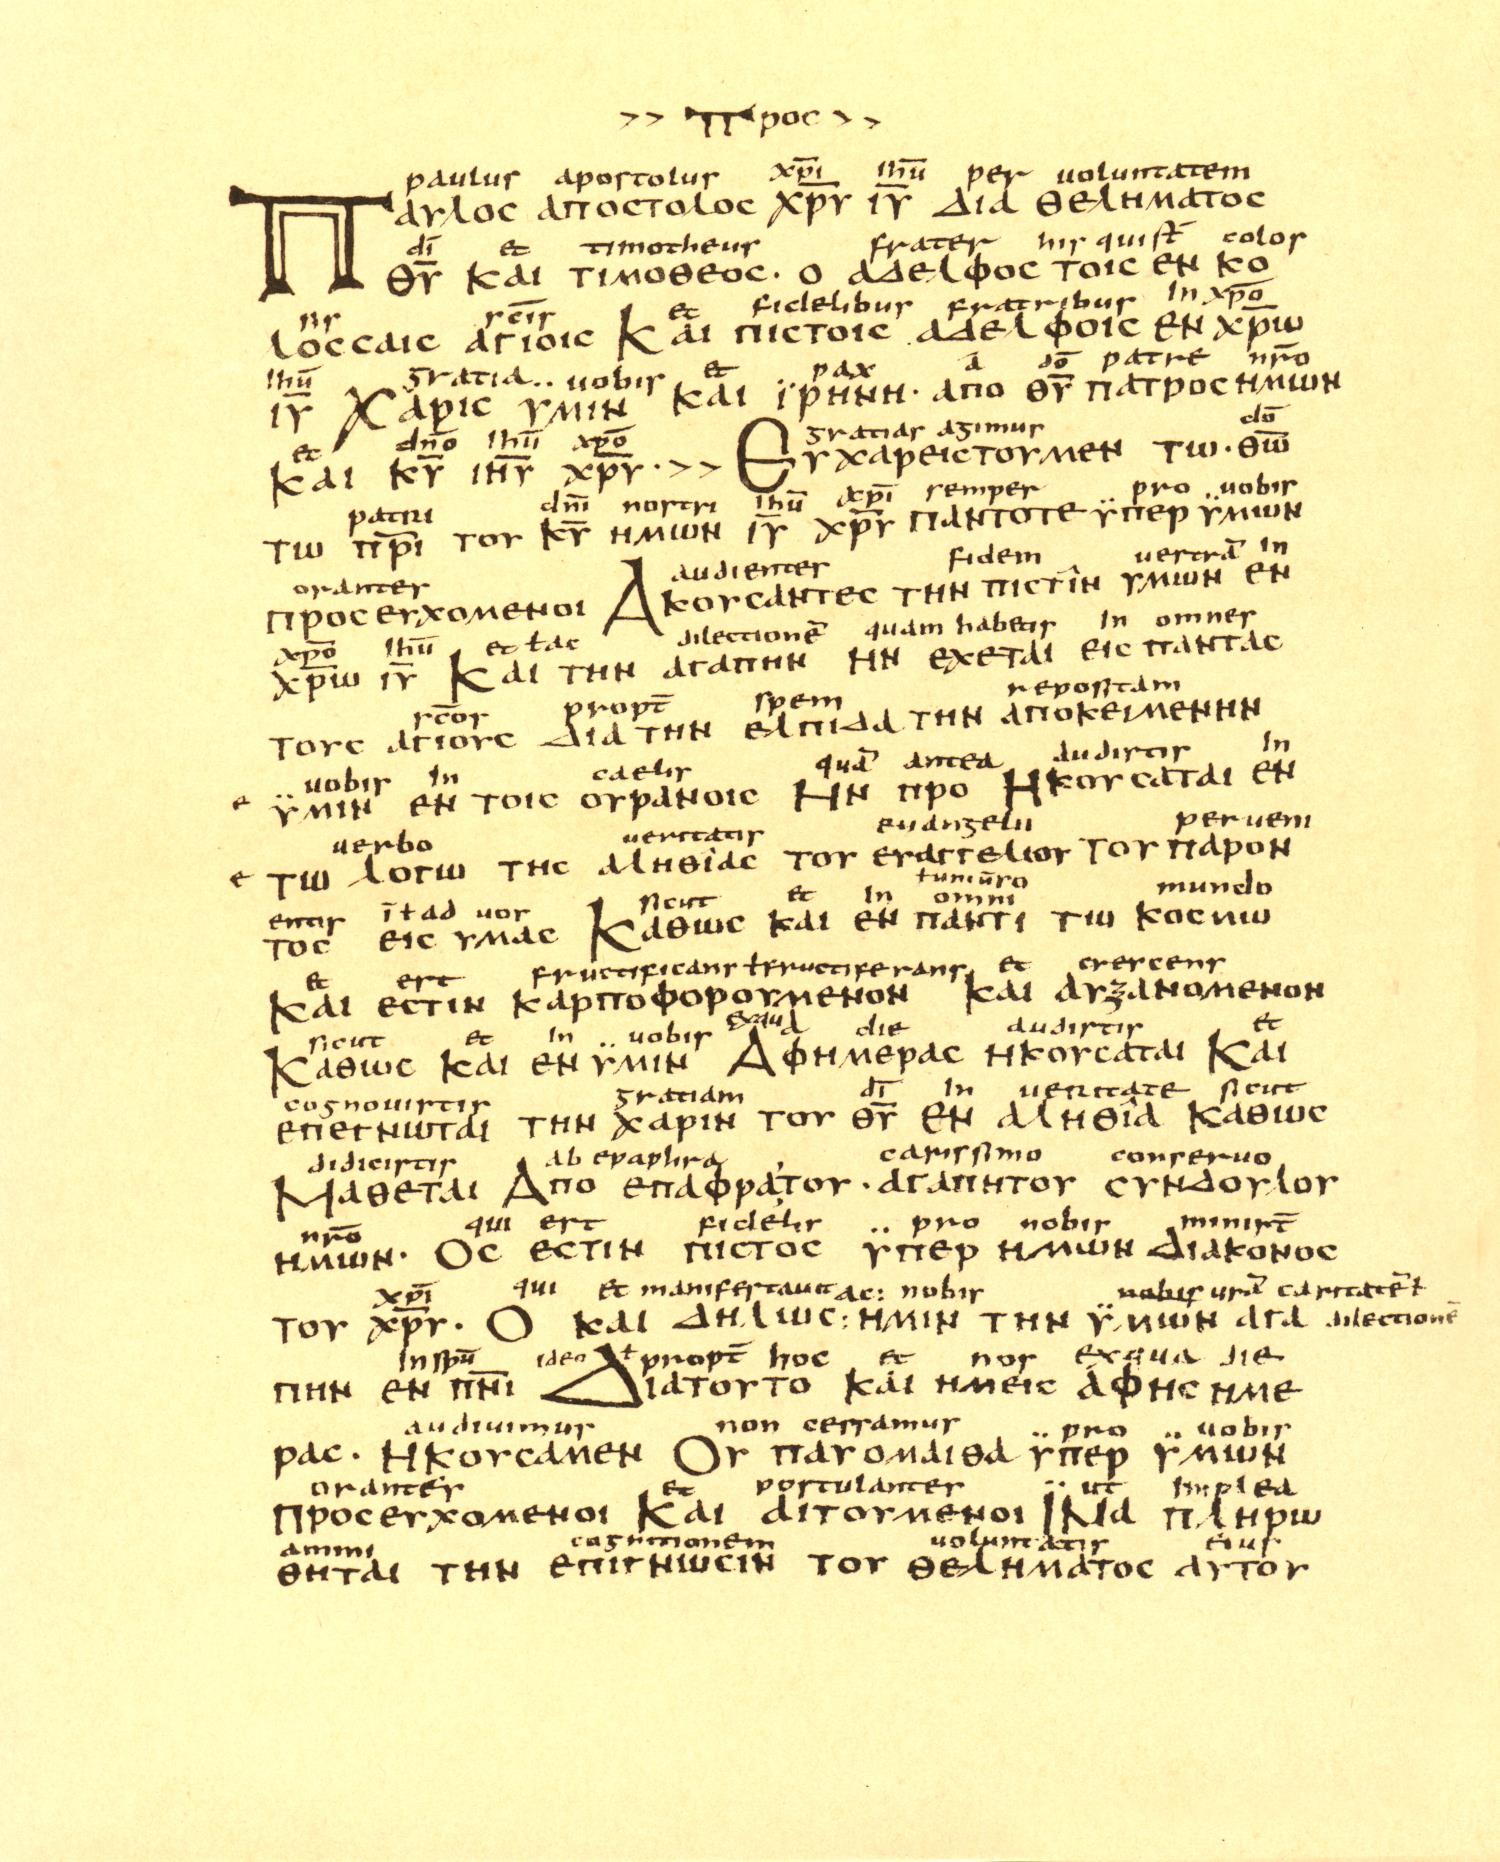 >> Προς >>
paulus apostolus xp̅i ihu̅ per uoluntatem
Παυλος αποστολος χ̅ρ̅υ ι̅υ̅ δια θεληματος
di̅ et timotheus frater his qui st̅ colos
θ̅υ̅ και τιμοθεος· ο αδελφος τοις εν κο
sis sc̅is et fidelibus fratribus in xp̅o
λοςσαις αγιοις Και πιστοις αδελφοις εν χ̅ρ̅ω
ihu̅ gratia.. uobis et pax a̅ do̅ patre nr̅o
ι̅υ̅ Χαρις υμιν και ϊρηνη· απο θ̅υ̅ πατρος ημων
et dn̅o ihu̅ xp̅o gratias agimus do̅
και κ̅υ̅ ι̅η̅υ̅ χ̅ρ̅υ·>> Ευχαρειστουμεν τω·θ̅ω̅
patri dn̅i nostri ihu̅ xp̅i semper pro uobis
τω π̅ρ̅ι του κ̅υ̅ ημων ι̅υ̅ χ̅ρ̅υ παντοτε ϋπερ ϋμων
orantes audientes fidem uestra̅ in
προσευχομενοι Ακουσαντες την πιστîν υμων εν
xp̅o ihu̅ et ƚ ac dilectione̅ quam habetis in omnes
χ̅ρ̅ω ι̅υ̅ Και την αγαπην Ην εχεται εις παντας
sc̅os propt̅ spem repositam
τους αγιους δια την ελπιδα την αποκειμενην
uobis in caelis qua̅ antea audistis in
e ϋμιν εν τοις ουρανοις Ην προ Ηκουσαται εν
uerbo ueritatis euangelii peruem
e τω λογω της αληθîας του ευαγγελιου Του παρον
tum ur̅o
entis i̅ ƚ ad uos sicut et in omni mundo
τος εις υμας Καθως και εν παντι τω κοσμω
et est fructificans ƚ fructiferans et crescens
Και εστιν καρποφορουμενον και αυξανομενον
sicut et in uobis exqua die audistis et
Καθως και εν ϋμιν Αφημερας ηκουσαται Και
cognouistis gratiam di̅ in ueritate sicut
επεγνωται την χαριν του θ̅υ̅ εν αληθîα καθως
didicistis ab epaphra carissimo conseruo
Μαθεται Απο επαφρατου·αγαπητου συνδουλου
nr̅o qui est fidelis pro nobis minist̅
ημων· Ος εστιν πιστος ϋπερ ημων διακονος
xp̅i qui et manifestauit ac: nobis nobis ura̅ caritate̅ ƚ
του χ̅ρ̅υ· Ο και δηλως: ημιν την ϋμων αγα dilectione̅
in spu̅ ideo ƚ propt̅ hoc et nos exqua die
πην εν π̅ν̅ι Διατουτο και ημεις αφης ημε
audiuimus non cessamus pro uobis
ρας· Ηκουσαμεν Ου παυομαιθα ϋπερ ϋμων
orantes et postulantes ut implea
προσευχομενοι Και αιτουμενοι ΙΝα πληρω
amini cognitionem uoluntatis eius
θηται την επιγνωσιν του θεληματος αυτου